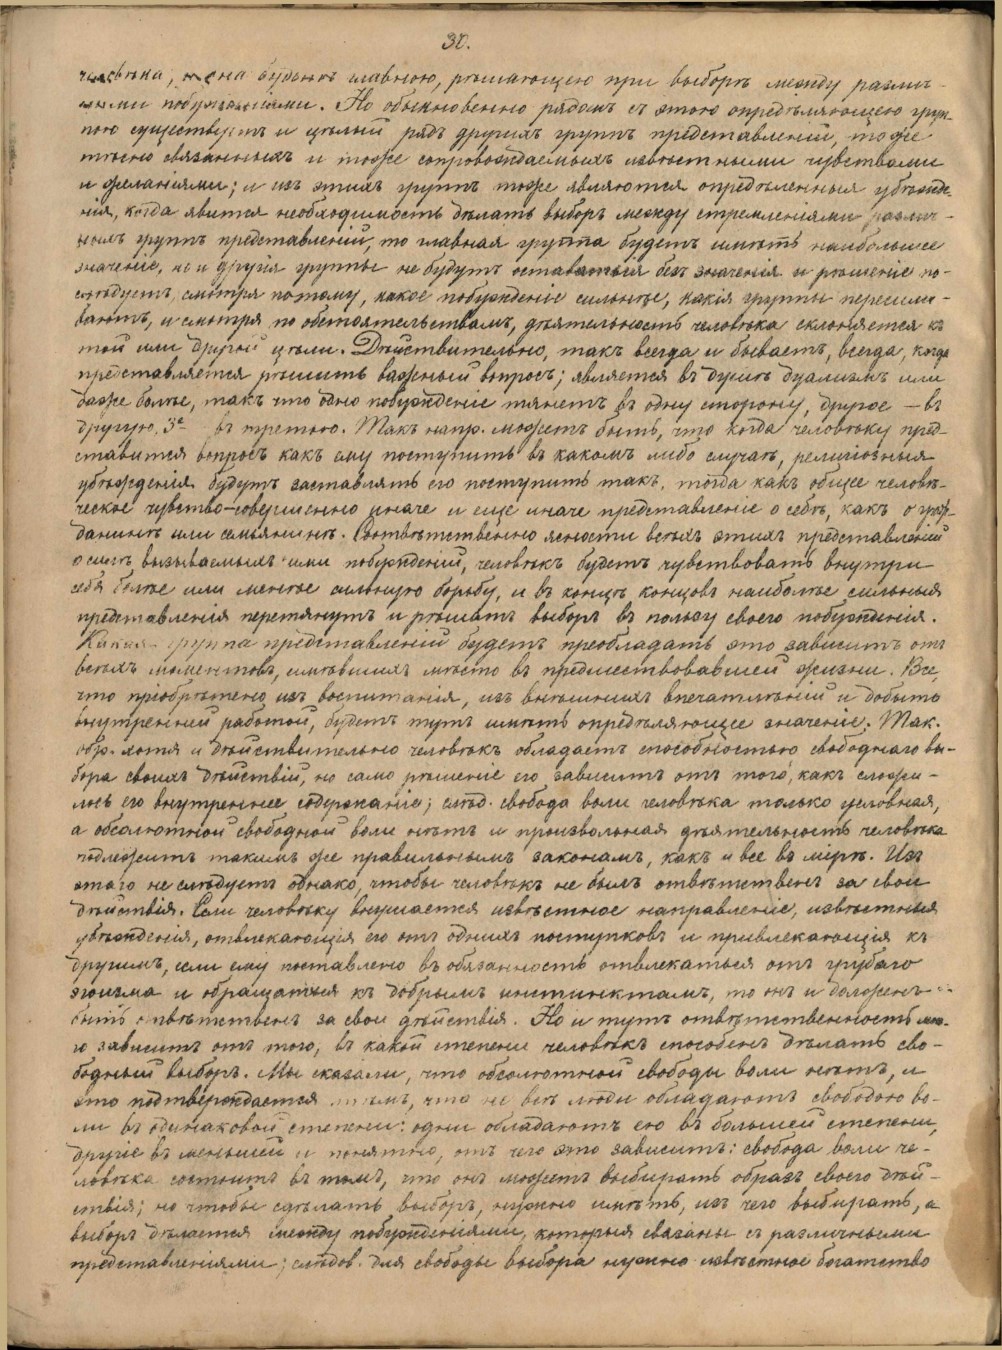 30.
человѣка, то она будетъ главною, рѣшающею при выборѣ между различ-
ными побужденіями. Но обыкновенно рядомъ съ этою опредѣляющею груп-
пою существуетъ и цѣлый рядъ другихъ группъ представленій, тоже
тѣсно связанныхъ и тоже сопровождаемыхъ извѣстными чувствами
и желаніями; и изъ этихъ группъ тоже являются опредѣленныя убѣжде-
нія, когда явится необходимость дѣлать выборъ между стремленіями различ-
ныхъ группъ представленій, то главная группа будетъ имѣть наибольшее
значеніе, но и другія группы не будутъ оставаться безъ значенія и рѣшеніе по-
слѣдуетъ, смотря потому, какое побужденіе сильнѣе, какія группы пересили-
ваютъ, и смотря по обстоятельствамъ, дѣятельность человѣка склоняется къ
той или другой цѣли. Дѣйствительно, такъ всегда и бываетъ, всегда, когда
представляется рѣшить важный вопросъ; является въ душѣ дуализмъ или
даже болѣе, такъ что одно побужденіе тянетъ въ одну сторону, другое — въ
другую, 3е въ третью. Такъ напр. можетъ быть, что когда человѣку пред-
ставится вопросъ какъ ему поступить въ какомъ либо случаѣ, религіозныя
убѣжденія будутъ заставлять его поступить такъ, тогда какъ общее человѣ-
ческое чувство-совершенно иначе и еще иначе представленіе о себѣ, какъ о граж-
данинѣ или семьянинѣ. Соотвѣтственно ясности всѣхъ этихъ представленій
о силѣ вызываемыхъ ими побужденій, человѣкъ будетъ чувствовать внутри
себя болѣе или менѣе сильную борьбу, и въ концѣ концовъ наиболѣе сильныя
представленія перетянутъ и рѣшатъ выборъ въ пользу своего побужденія.
Какая группа представленій будетъ преобладать это зависитъ отъ
всѣхъ моментовъ, имѣвшихъ мѣсто въ предшествовавшей жизни. Все,
что пріобрѣтено изъ воспитанія, изъ внѣшнихъ впечатлѣній и добыто
внутренней работой, будетъ тутъ имѣть опредѣляющее значеніе. Так.
обр. хотя и дѣйствительно человѣкъ обладаетъ способностью свободнаго вы-
бора своихъ дѣйствій, но само рѣшеніе его зависитъ отъ того, какъ сложи-
лось его внутреннее содержаніе; слѣд. свобода воли человѣка только условная,
а абсолютной свободной воли нѣтъ и произвольная дѣятельность человѣка
подлежитъ такимъ же правильнымъ законамъ, какъ и все въ мірѣ. Изъ
этаго не слѣдуетъ однако, чтобы человѣкъ не былъ отвѣтственъ за свои
дѣйствія. Если человѣку внушается извѣстное направленіе, извѣстныя
убѣжденія, отвлекающія его отъ однихъ поступковъ и привлекающія къ
другимъ, если ему поставлено въ обязанность отвлекаться отъ грубаго
эгоизма и обращаться къ добрымъ инстинктамъ, то онъ и долженъ
быть отвѣтственъ за свои дѣйствія. Но и тутъ отвѣтственность мно-
го зависитъ отъ того, въ какой степени человѣкъ способенъ дѣлать сво-
бодный выборъ. Мы сказали, что абсолютной свободы воли нѣтъ, и
это подтверждается тѣмъ, что не всѣ люди обладаютъ свободою во-
ли въ одинаковой степени: одни обладаютъ ею въ большей степени,
другіе въ меньшей и понятно, отъ чего это зависитъ: свобода воли че-
ловѣка состоитъ въ томъ, что онъ можетъ выбирать образъ своего дѣй-
ствія; но чтобы сдѣлать выборъ, нужно имѣть, изъ чего выбирать, а
выборъ дѣлается между побужденіями, которыя связаны съ различными
представленіями; слѣдов. для свободы выбора нужно извѣстное богатство